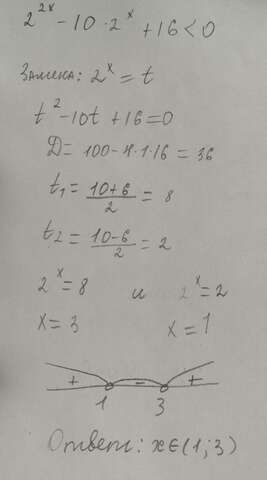 2^{2x} - 10 · 2^x + 16 < 0
Замена: 2^x = t
t^2 - 10t + 16 = 0
D = 100 - 4·1·16 = 36
t_1 = \frac{10+6}{2} = 8
t_2 = \frac{10-6}{2} = 2
2^x = 8 и 2^x = 2
x = 3 x = 1
+ - +
1 3
Ответ: x∈(1; 3)